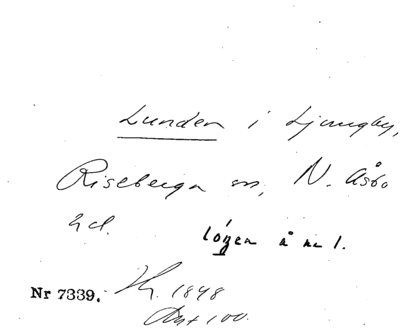 Lunden i Ljungby,
Riseberga sn, N. Åsbo
hd. lågen å nr 1.
Nr 7339. 1848
100.